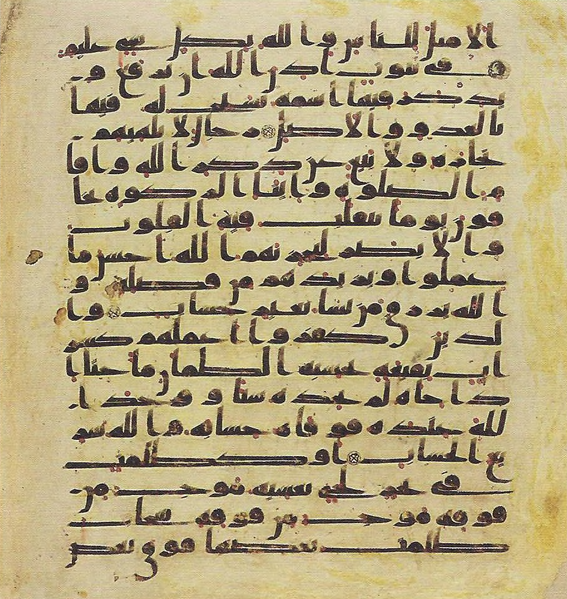 الامثل للناس والله بكل شى عليم
فى بيوت اذن الله ان ترفع و
يذكر فيها اسمه يسبح له فيها
بالغدو والاصل رجال لا تلهيهم
تجره ولا بيع عن ذكر الله واقا
م الصلوه وايتا الزكوه يخا
فون يوما تتقلب فيه القلوب
والابصر ليجزيهم الله احسن ما
عملوا ويزيدهم من فضله و
الله يرزق من يشا بغير حساب وا
لذين كفروا اعملهم كسر
اب بقيعه يحسبه الظمان ما حتى ا
ذا جاه لم يجده شيا و وجد ا
لله عنده فوفاه حسابه والله سر
يع الحساب او كظلمت
فى بحر لجى يغشيه موج من
فوقه موج من فوقه سحاب
ظلمت بعضها فوق بعض